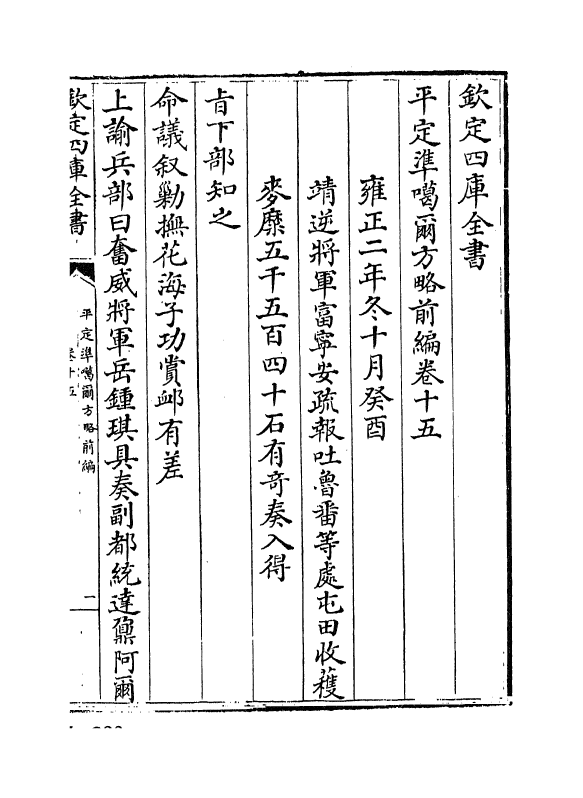 欽定四庫全書
平定準噶爾方略前編卷十五
雍正二年冬十月癸酉
靖逆將軍富寧安疏報吐魯番等處屯田收䕶
麥糜五千五百四十石有奇奏入得
㫖下部知之
命議叙勦撫花海子功賞䘏有差
上諭兵部曰奮威將軍岳鍾琪具奏副都統達鼐阿爾
欽定四庫全書
平定準噶爾方略前編
卷十五
一